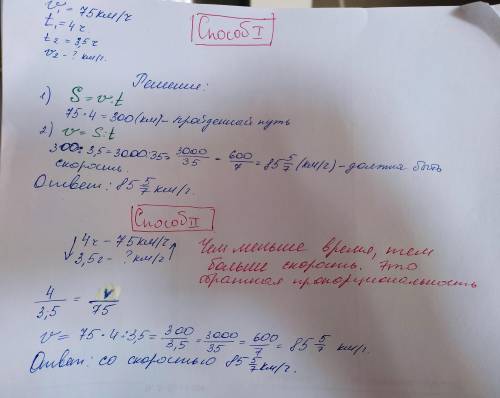 v₁ = 75 км/ч
t₁ = 4 ч
t₂ = 3,5 ч
v₂ - ? км/ч.
Способ I
Решение:
1) S = v·t
75·4 = 300 (км) - пройденный путь
2) v = S:t
300:3,5 = 3000:35 = 3000/35 = 600/7 = 85 5/7 (км/ч) - должна быть
скорость.
Ответ: 85 5/7 км/ч.
Способ II
4ч - 75 км/ч
3,5ч - ? км/ч
Чем меньше время, тем
больше скорость. Это
обратная пропорциональность
4/3,5 = v/75
v = 75·4:3,5 = 300/3,5 = 3000/35 = 600/7 = 85 5/7 км/ч.
Ответ: со скоростью 85 5/7 км/ч.